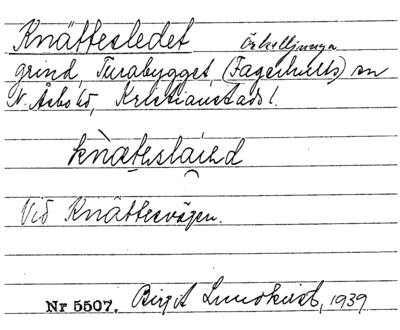 Knättesledet Örkelljunga
grind, Turabygget, (Fagerhults) sn
N. Åsbo hd, Kristianstads l.
Vid Knättesvägen.
Nr 5507. Birgit Lundkvist, 1939